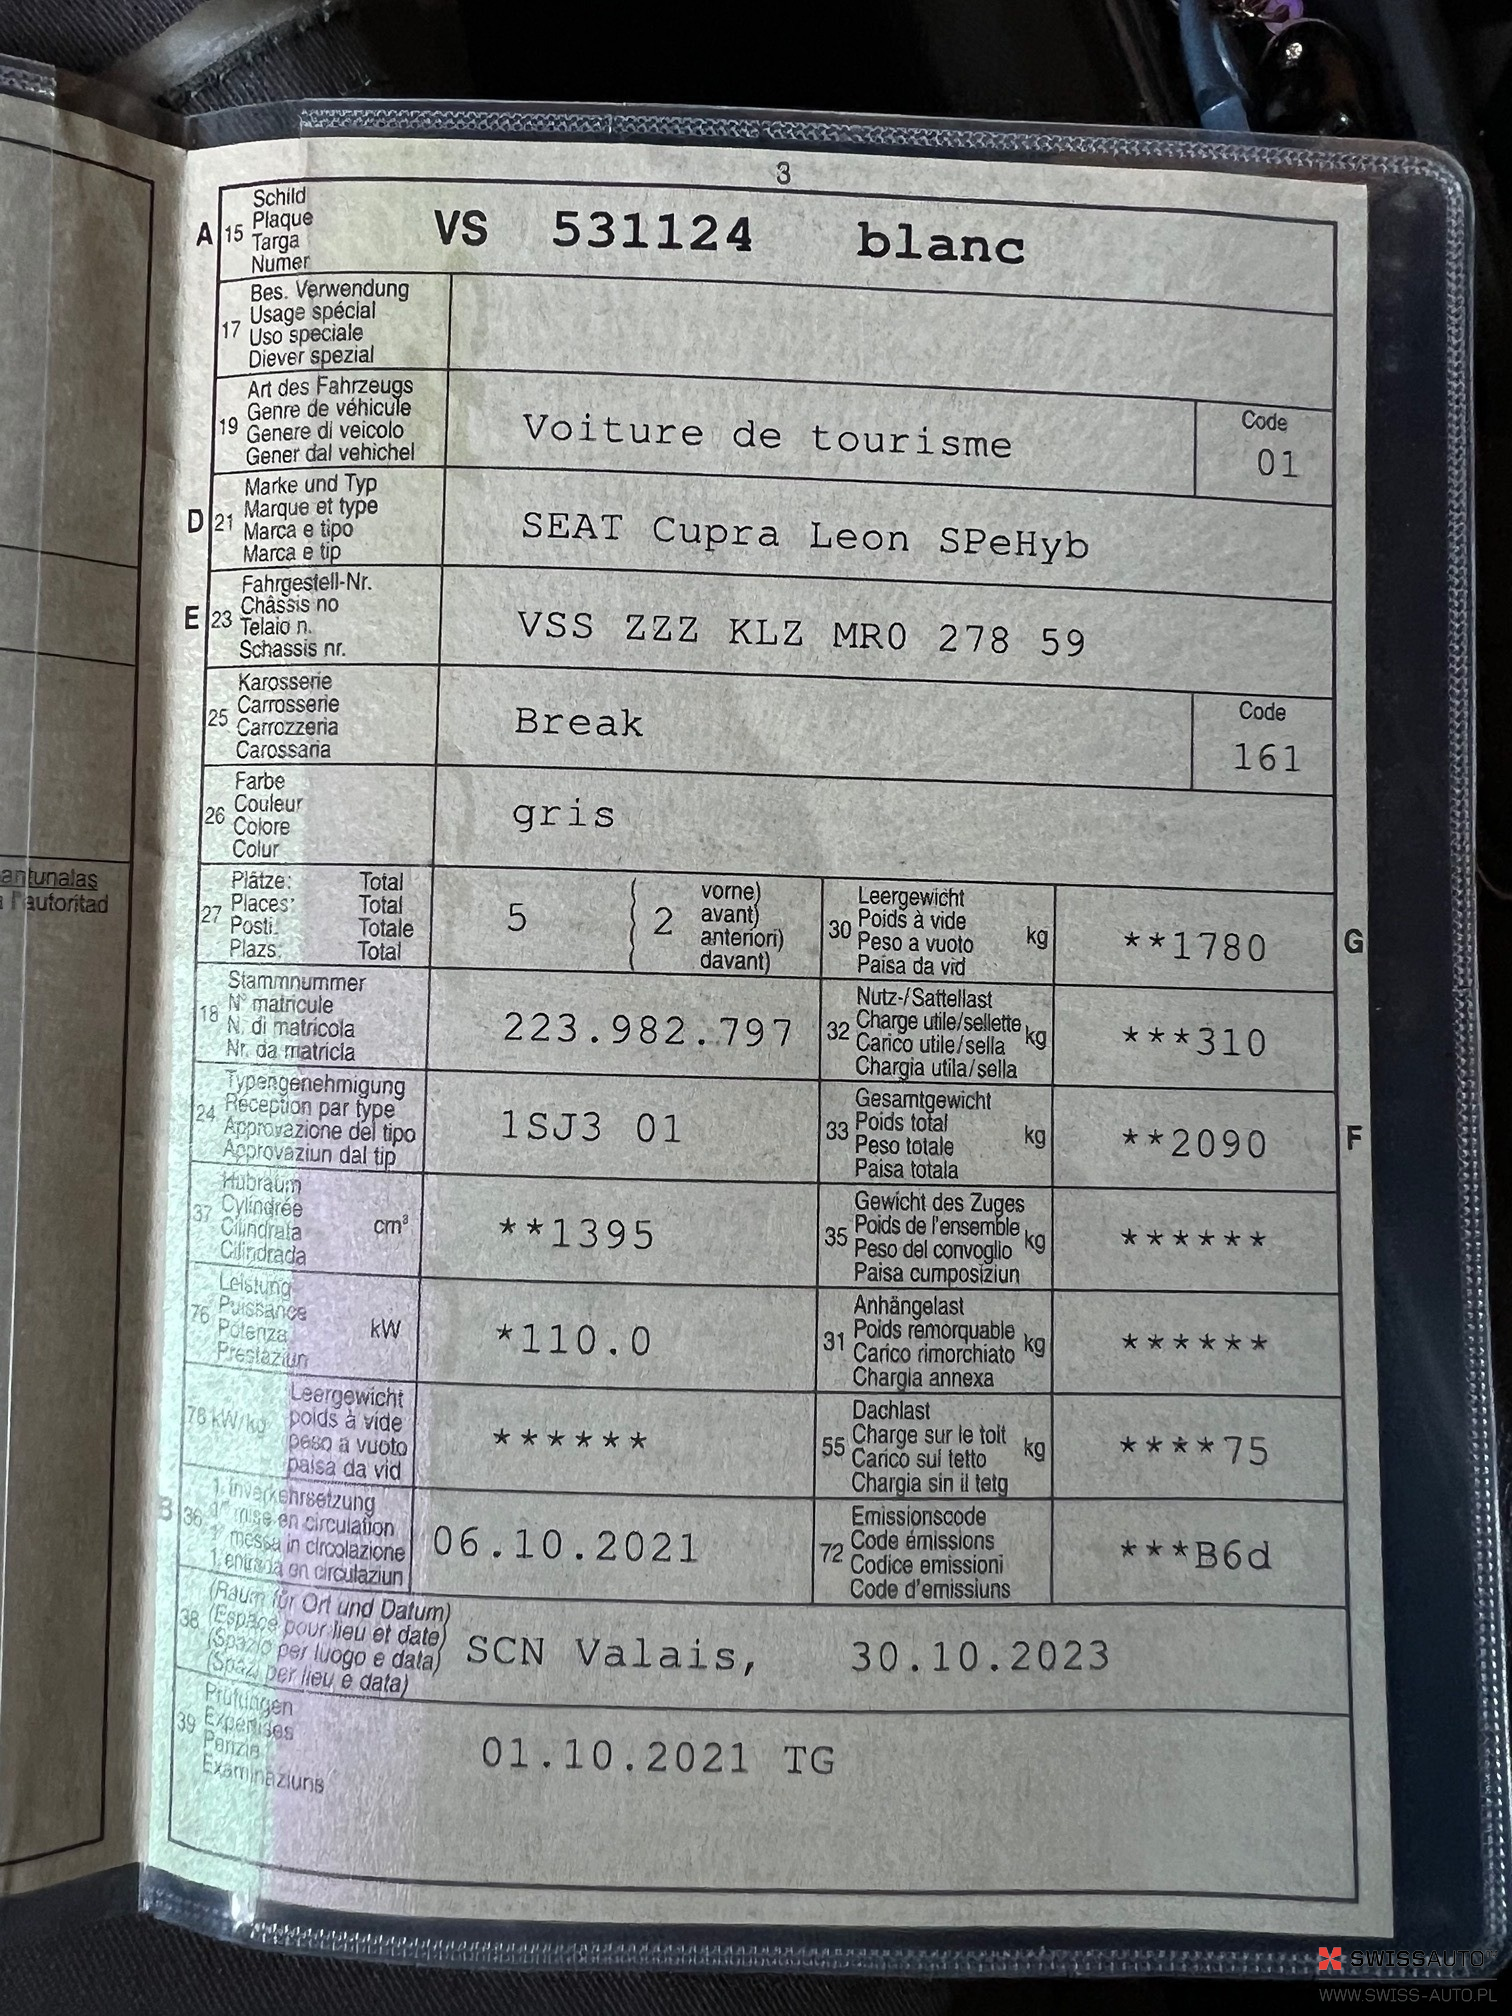 3
A 15 Schild
Plaque
Targa
Numer
VS 531124 blanc
17 Bes. Verwendung
Usage spécial
Uso speciale
Diever spezial
19 Art des Fahrzeugs
Genre de véhicule
Genere di veicolo
Gener dal vehichel
Voiture de tourisme
Code
01
D 21 Marke und Typ
Marque et type
Marca e tipo
Marca e tip
SEAT Cupra Leon SPeHyb
E 23 Fahrgestell-Nr.
Châssis no
Telaio n.
Schassis nr.
VSS ZZZ KLZ MR0 278 59
25 Karosserie
Carrosserie
Carrozzeria
Carossaria
Break
Code
161
26 Farbe
Couleur
Colore
Colur
gris
antunalas
l'autoritad
27 Plätze: Total
Places: Total
Posti: Totale
Plazs: Total
5 2
vorne)
avant)
anteriori)
davant)
30 Leergewicht
Poids à vide
Peso a vuoto
Paisa da vid
kg
**1780
G
18 Stammnummer
N° matricule
N. di matricola
Nr. da matricla
223.982.797
32 Nutz-/Sattellast
Charge utile/sellette
Carico utile/sella
Chargia utila/sella
kg
***310
24 Typengenehmigung
Réception par type
Approvazione del tipo
Approvaziun dal tip
1SJ3 01
33 Gesamtgewicht
Poids total
Peso totale
Paisa totala
kg
**2090
F
37 Hubraum
Cylindrée
Cilindrata
Cilindrada
cm³
**1395
35 Gewicht des Zuges
Poids de l'ensemble
Peso del convoglio
Paisa cumposiziun
kg
******
76 Leistung
Puissance
Potenza
Prestaziun
kW
*110.0
31 Anhängelast
Poids remorquable
Carico rimorchiato
Chargia annexa
kg
******
78 kW/kg Leergewicht
poids à vide
peso a vuoto
paisa da vid
******
55 Dachlast
Charge sur le toit
Carico sul tetto
Chargia sin il tetg
kg
****75
B 36 1. Inverkehrsetzung
1re mise en circulation
1a messa in circolazione
1. entrada en circulaziun
06.10.2021
72 Emissionscode
Code émissions
Codice emissioni
Code d'emissiuns
***B6d
38 (Raum für Ort und Datum)
(Espace pour lieu et date)
(Spazio per luogo e data)
(Spazi per lieu e data)
SCN Valais, 30.10.2023
39 Prüfungen
Expertises
Perizie
Examinaziuns
01.10.2021 TG
SWISSAUTO
WWW.SWISS-AUTO.PL